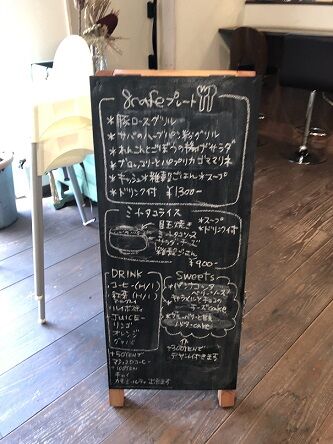 cafeプレート
*豚ロースグリル
*サバのハーブパン粉グリル
*れんこんとごぼうの揚げサラダ
*ブロッコリーとパプリカゴママリネ
*キッシュ*雑穀ごはん*スープ
*ドリンク付 ¥1300-
ミートタコライス
目玉焼き
ミートタコソース
サラダ・チーズ
雑穀ごはん
*スープ
*ドリンク付
¥900-
DRINK
コーヒー(H/I)
紅茶(H/I)
ルイボスティ
JUICE
リンゴ
オレンジ
グァバ
+50YENで
チャイ
Sweets
*パンナコッタ
チーズcake
バターcake
+300YENで
デザート付きます